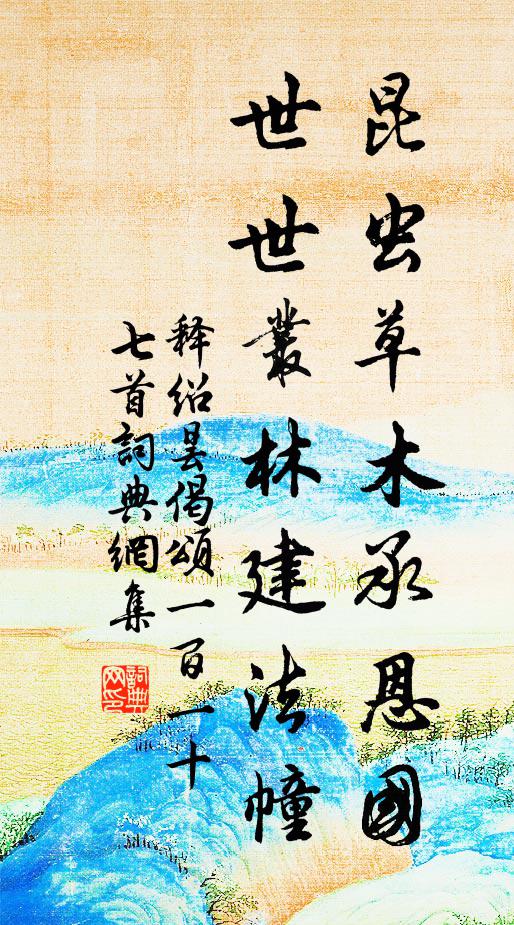 昆虫草木承恩國
世世叢林建法幢
释绍昙偈頌一百一十
七首詞典網集
詞典网印